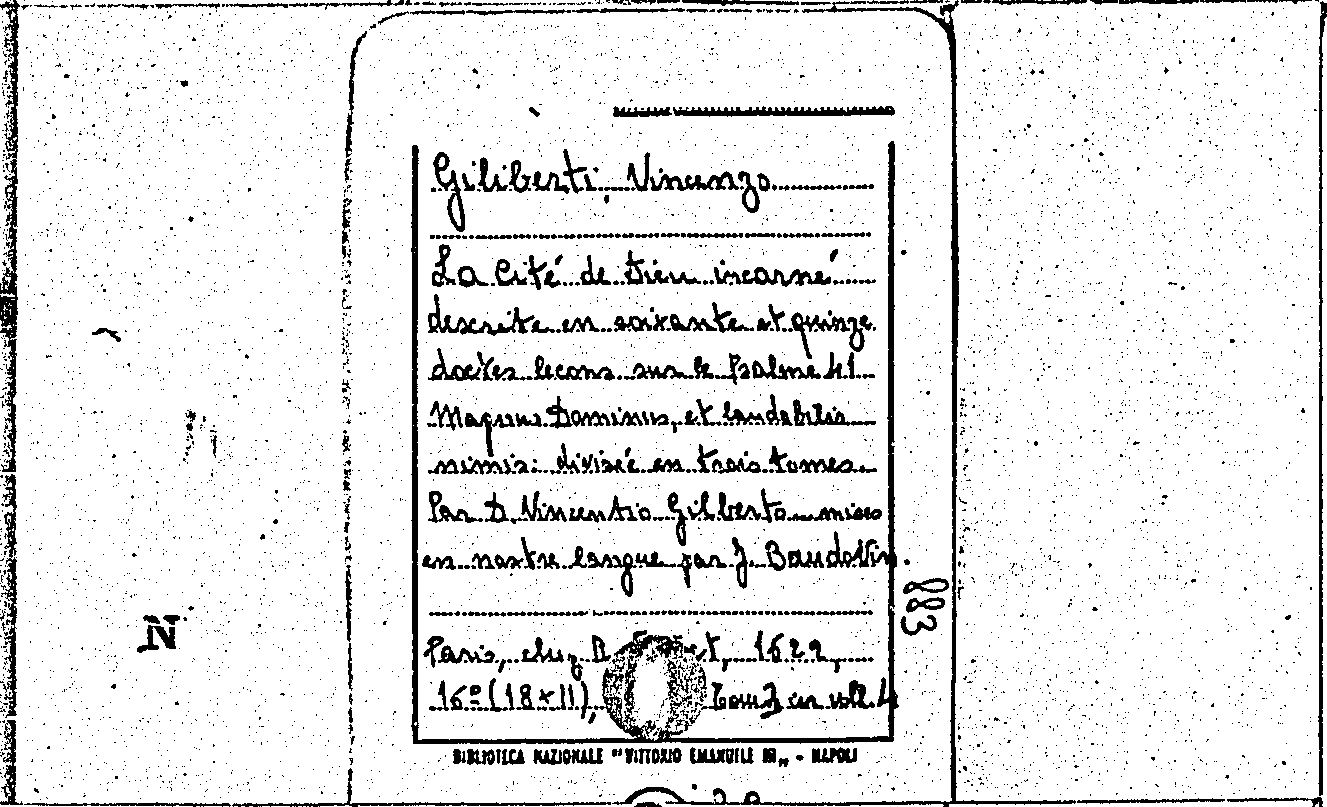 Giliberti, Vincenzo
La Cité de Dieu incarné
descrite en soixante et quinze
doctes leçons sur le Psalme 41
Magnus Dominus, et laudabilis
nimis: divisée en trois tomes.
Par D. Vincentio Gilberto mises
en nostre langue par J. Baudovin.
Paris, chez 1622,
16º (18x11), Tom. 3 en voll. 4
BIBLIOTECA NAZIONALE "VITTORIO EMANUELE III" - NAPOLI
883
N